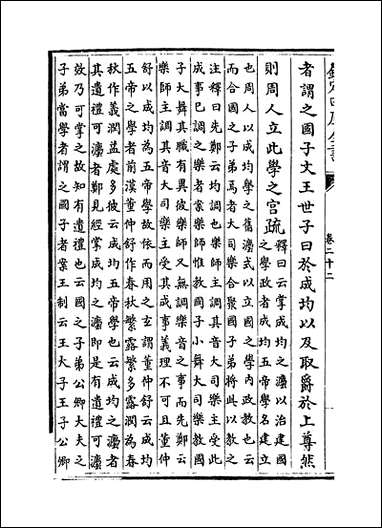 欽定四庫全書
卷二十二
者謂之國子文王世子曰於成均以及取爵於上尊然
則周人立此學之宫疏釋曰云掌成均之灋以治建國
之學政者成均五帝學名建立
也周人以成均學之舊灋式以立國之學内政教也云
而合國之子弟焉者大司樂合聚國子弟將此以教之
注釋曰先鄭云均調也樂師主調其音大司樂主受此
成事已調之樂者案樂師惟教國子小舞大司樂教國
子大舞其職有異彼樂師又無調樂音之事而先鄭云
樂師主調其音大司樂主受其成事義理不可且董仲
舒以成均為五帝學故依而用之玄謂董仲舒云成均
五帝之學者前漢董仲舒作春秋繁露繁多露潤為春
秋作義潤益處多彼云成均五帝學也云成均之灋者
其遺禮可灋者鄭見經掌成均之灋即是有遺禮可灋
效乃可掌之故知有遺禮也云國之子弟公卿大夫之
子弟當學者謂之國子者案王制云王大子王子公卿